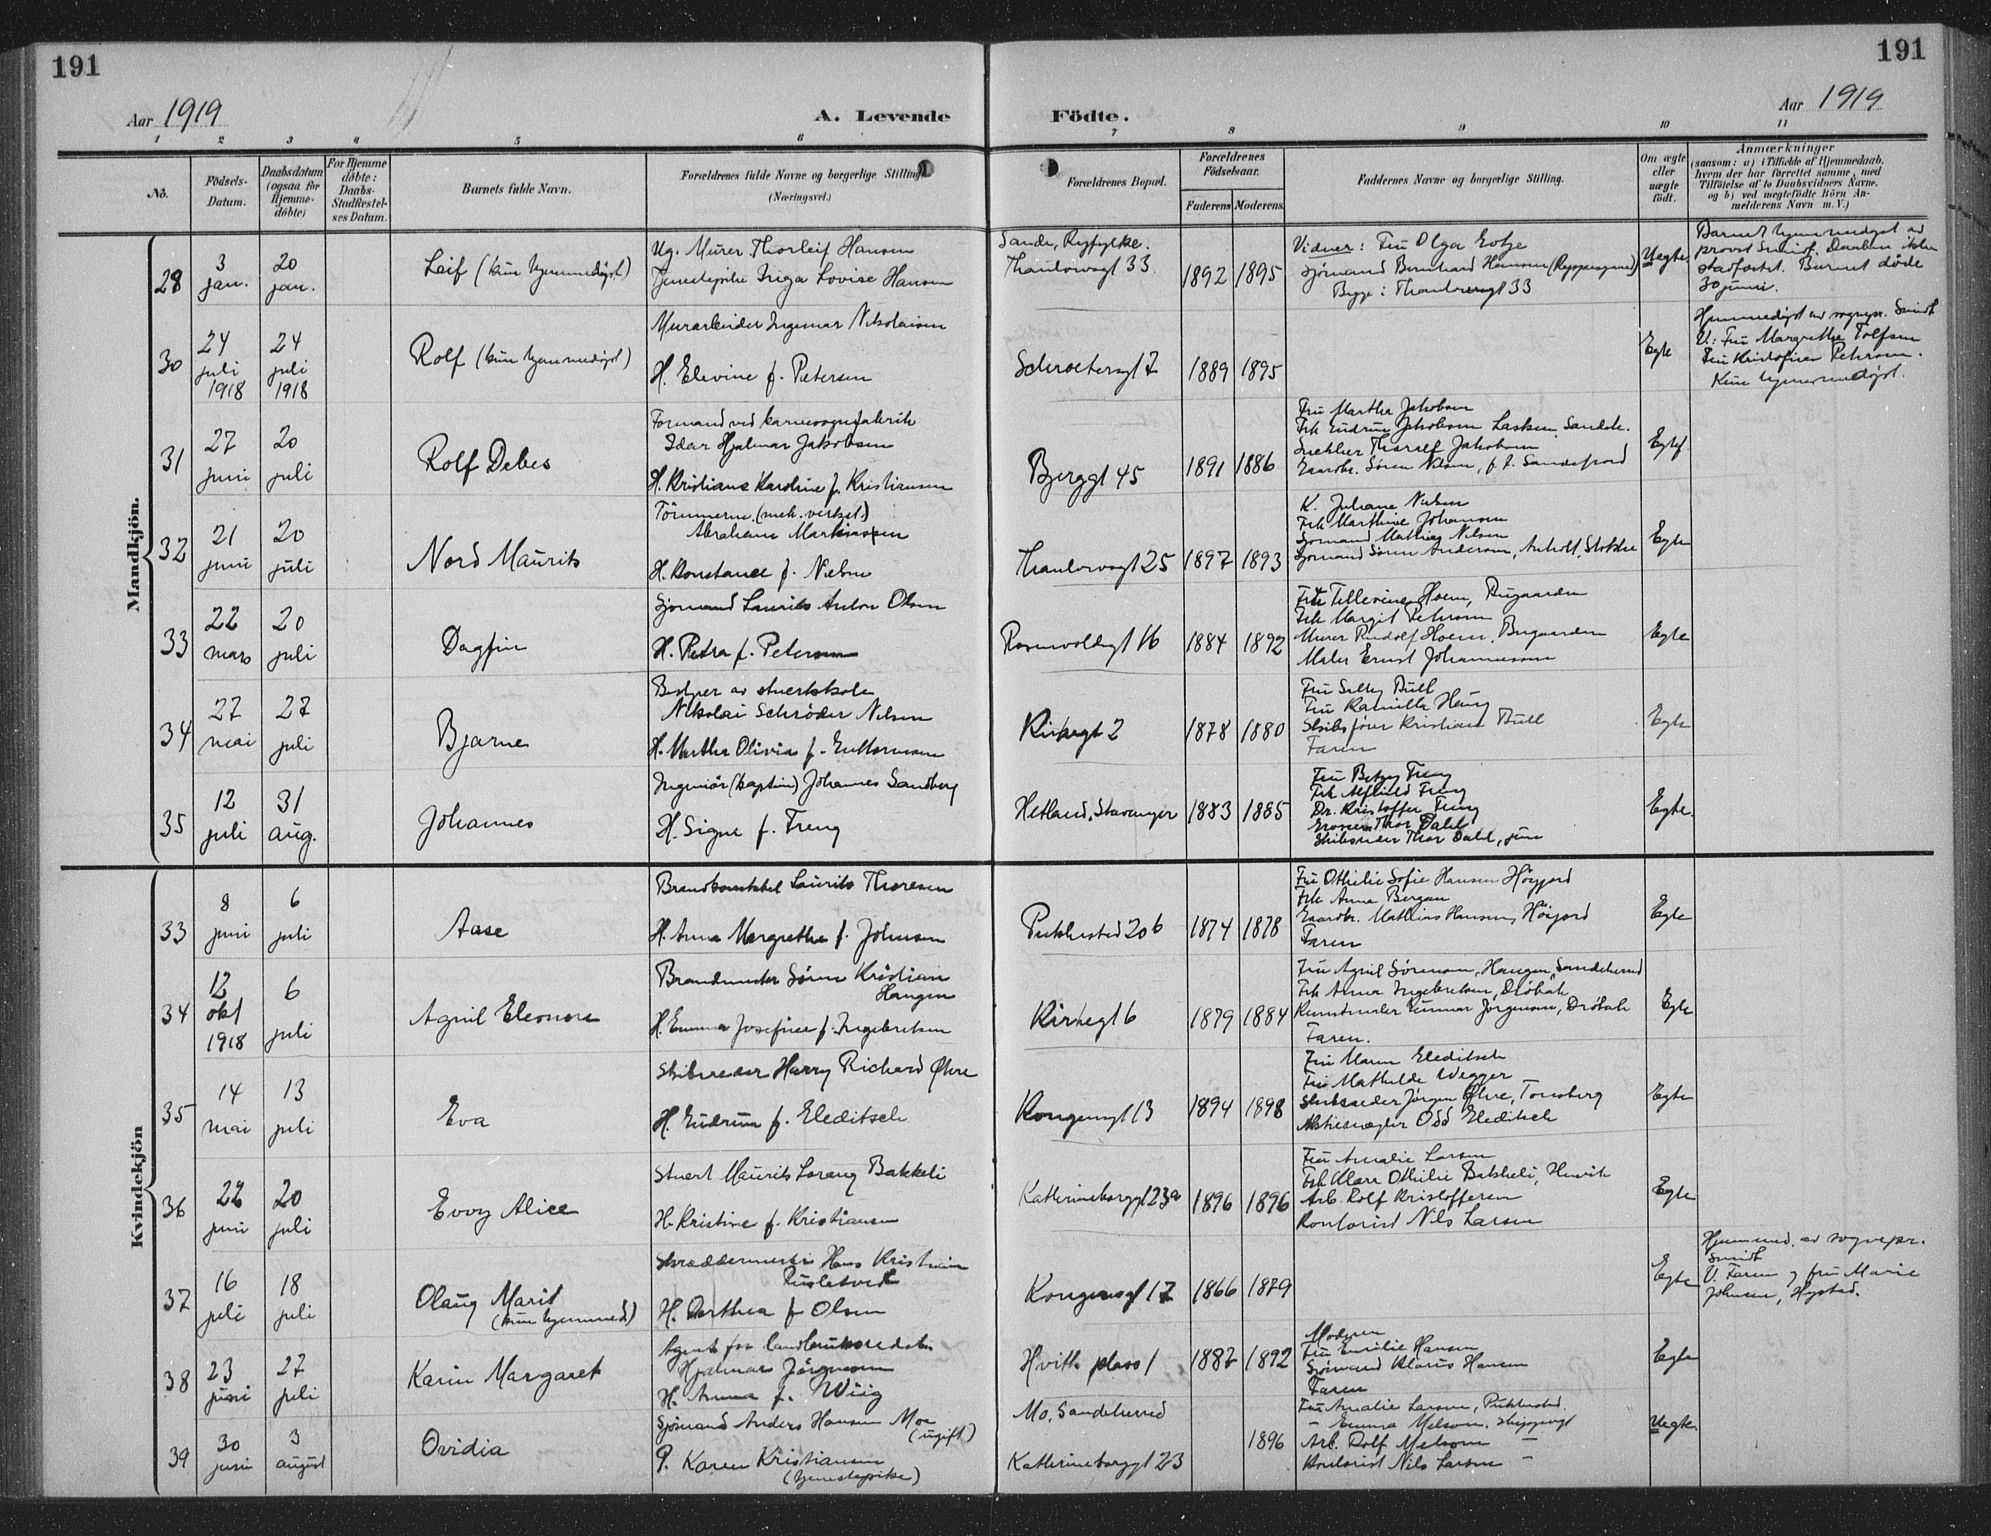 191
191
Aar 1919
A. Levende
Födte.
Aar 1919
1 2 3 4 5 6 7 8 9 10 11
No.
Födsels-Datum.
Daabsdatum (ogsaa for Hjemme-döbte)
For Hjemme döbte: Daabs-Stadfæstel-ses Datum.
Barnets fulde Navn.
Forældrenes fulde Navne og borgerlige Stilling
(Næringsvei.)
Forældrenes Bopæl.
Forældrenes Födselsaar.
Faderens
Moderens
Faddernes Navne og borgerlige Stilling.
Om ægte eller uægte født.
Anmærkninger
(saasom: a) i Tilfælde af Hjemmedaab, hvem der har forrettet samme, med Tilföielse af to Daabsvidners Navne, og b) ved uegtefödte Börn An-melderens Navn m. V.)
Mandkjön.
28
3 jan.
20 jan.
Leif (kun hjemmedøpt)
Ug. Murer Thorleif Hansen
Tjenestepike Inga Lovise Hansen
Sande, Ryfylke.
Thaulowsgt 33
1892
1895
Vidner: Fru Olga
Sjømand Bernhard Hansen
Begge: Thaulowsgt 33
Uegte
Barnet hjemmedøpt av
provst Smidt. Daaben ikke
stadfæstet. Barnet døde
30 juni.
30
24 juli 1918
24 juli 1918
Rolf (kun hjemmedøpt)
Murarbeider Ingemar Nikolaisen
H. Elevine f. Petersen
Schroetersgt 7
1889
1895
Egte
Hjemmedøpt av sognepr. Smidt
V: Fru Margrethe Tolfsen
Fru Kristofine Petersen.
Kun hjemmedøpt.
31
27 juni
20 juli
Rolf Debes
Formand ved
Idar Hjalmar Jakobsen
H. Kristiane Karoline f. Kristiansen
Bjerggt 45
1891
1886
Fru Martha Jakobsen
Frk Gudrun Jakobsen
Snekker Thoralf Jakobsen
Gaardbr. Søren Nilsen, f. t. Sandefjord
Egte
32
21 juni
20 juli
Nord Maurits
Tömmerm. (mek. verkst.)
Abraham Markussen
H. Konstance f. Nielsen
Thaulowsgt 25
1897
1893
K. Juliane Nielsen
Frk Marthine Johansen
Sjømand Mathias Nilsen
Sjømand Søren Andersen, Anholt, Stokke
Egte
33
22 mars
20 juli
Dagfin
Sjømand Laurits Anton Olsen
H. Petra f. Petersen
Rosenvoldsgt 16
1884
1892
Frk Tellevine Hoem, Bugaarden
Frk Margit Petersen
Murer Rudolf Hoem, Bugaarden
Maler Ernst Johannessen
Egte
34
27 mai
27 juli
Bjarne
Bestyrer av stuertskole
Nikolai Schrøder Nilsen
H. Martha Olivia f. Guttormsen
Kirkegt 2
1878
1880
Fru Selly Bull
Fru Kamilla Høeg
Skibsfører Kristian Bull
Faren
Egte
35
12 juli
31 aug.
Johannes
Ingeniör (kaptein) Johannes Sandberg
H. Signe f. Freng
Hetland, Stavanger
1883
1885
Fru Betzy Freng
Frk Alfhild Freng
Dr. Kristoffer Freng
Grosserer Thor Dahl
Skibsreder Thor Dahl, jun
Egte.
Kvindekjön
33
8 juni
6 juli
Aase
Brandkonstabel Laurits Thoresen
H. Anna Margrethe f. Johnsen
Pukkestad 20 b
1874
1878
Fru Othilie Sofie Hansen Höyjord
Frk Anna Bergan
Gaardbr. Mathias Hansen, Höijord
Faren
Egte
34
12 okt 1918
6 juli
Agnil Eleonore
Brandmester Sören Kristian
Haugen
H. Emma Josefine f. Ingebretsen
Kirkegt 6
1879
1884
Fru Agnil Sørensen, Haugen, Sandeherred
Frk Anna Ingebretsen, Dröbak
Kunstmaler Gunnar Jørgensen, Dröbak
Faren.
Egte
35
14 mai
13 juli
Eva
Skibsreder Harry Richard Øhre
H. Gudrun f. Gleditsch
Kongensgt 13
1894
1898
Fru Maren Gleditsch
Fru Mathilde Wegger
Skibsreder Jørgen Øhre, Tønsberg
Aktiemægler Odd Gleditsch
Egte
36
22 juni
20 juli
Evoy Alice
Stuert Maurits Lorang Bakkeli
H. Kristine f. Kristiansen
Katherineborggt 23a
1896
1896
Fru Amalie Larsen
Frk Klara Othilie Bakkeli,
Arb. Rolf Kristoffersen
Kontorist Nils Larsen
Egte
37
16 juli
18 juli
Olaug Marit
(kun hjemmed.)
Skræddermester Hans Kristian
H. Dorthea f Olsen
Kongensgt 17
1866
1879
Egte
Hjemmed. av sognepr.
Smidt
V. Faren og fru Marie
Johnsen, Hystad.
38
23 juni
27 juli
Karin Margaret
Agent for landbruksredsk.
Hjalmar Jörgensen
H. Anna f. Wiig
Hvitts plass 1
1887
1892
Moderen
Fru Emilie Hansen
Sjømand Klarius Hansen
Faren
Egte
39
30 juni
3 august
Ovidia
Sjömand Anders Hansen Moe
(ugift)
P. Karen Kristiansen
(tjenestepike)
Mo, Sandeherred
Katherineborggt 23
1896
Fru Amalie Larsen, Pukkestad.
— Emma Melsom, Skippergt
Arb. Rolf Melsom —
Kontorist Nils Larsen —
Uegte.